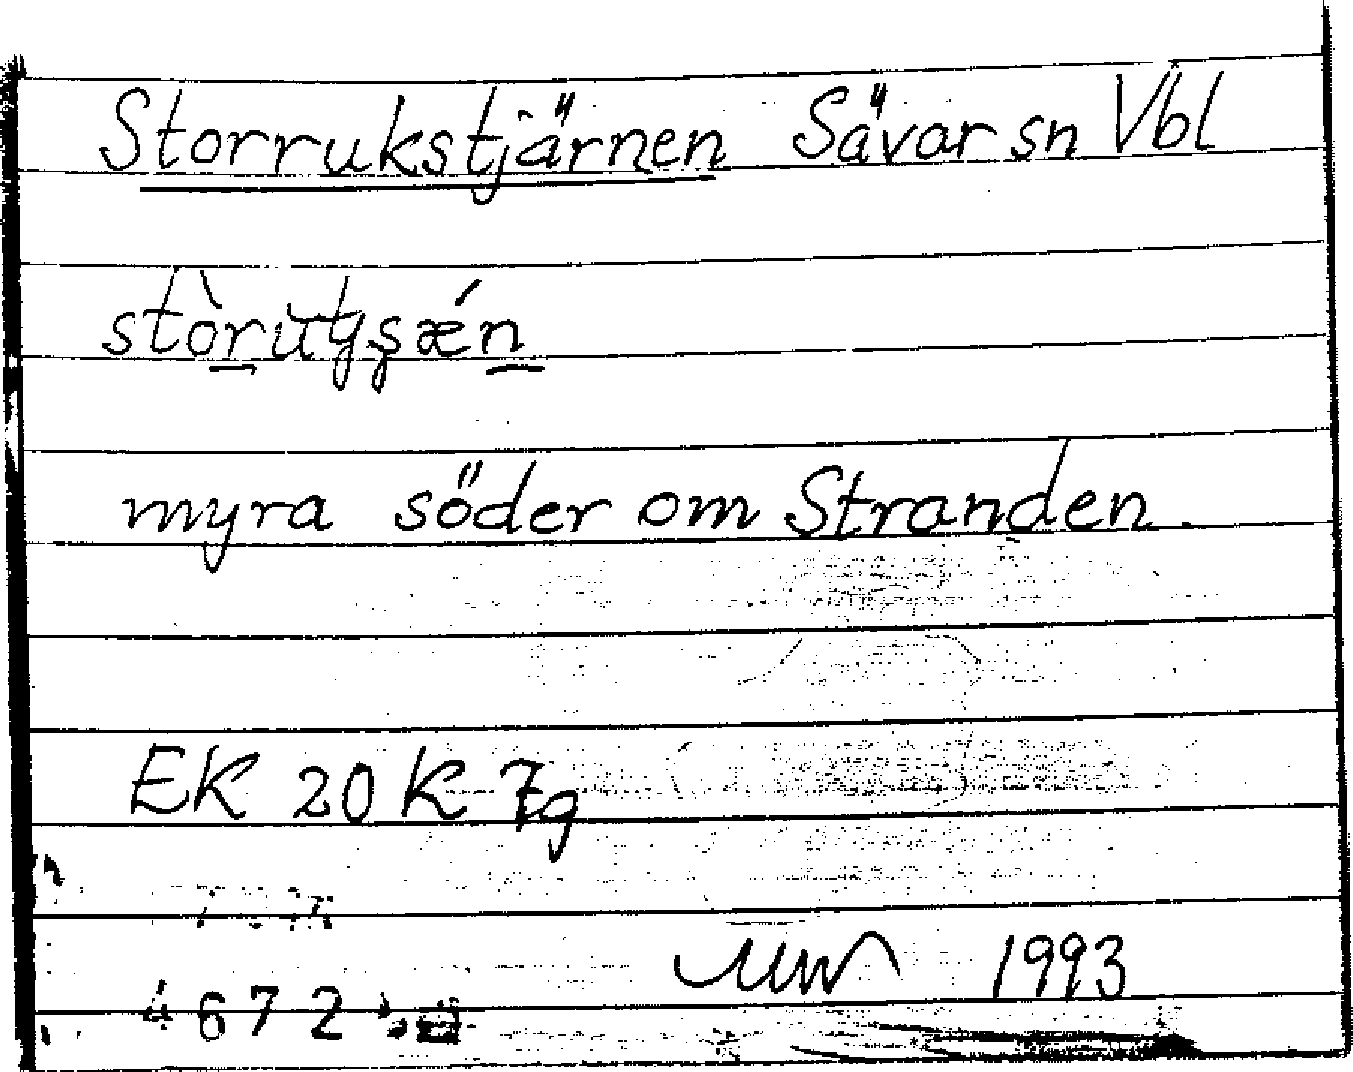 Storrukstjärnen Sävar sn Vbl
myra söder om Stranden.
EK 20 K 7g
1993
4672